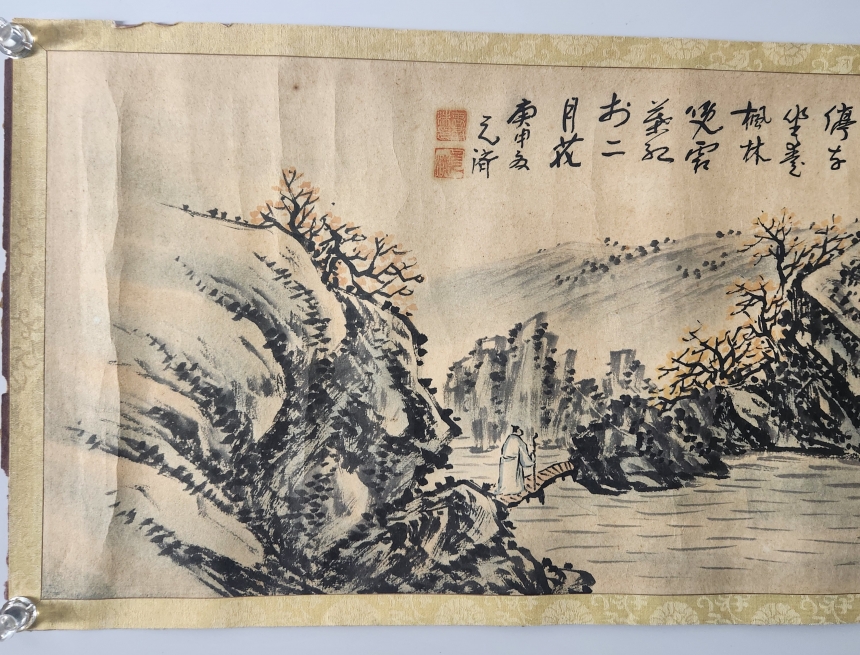 停车
坐爱
枫林
晚霜
葉红
於二
月花
庚申夏
元濟